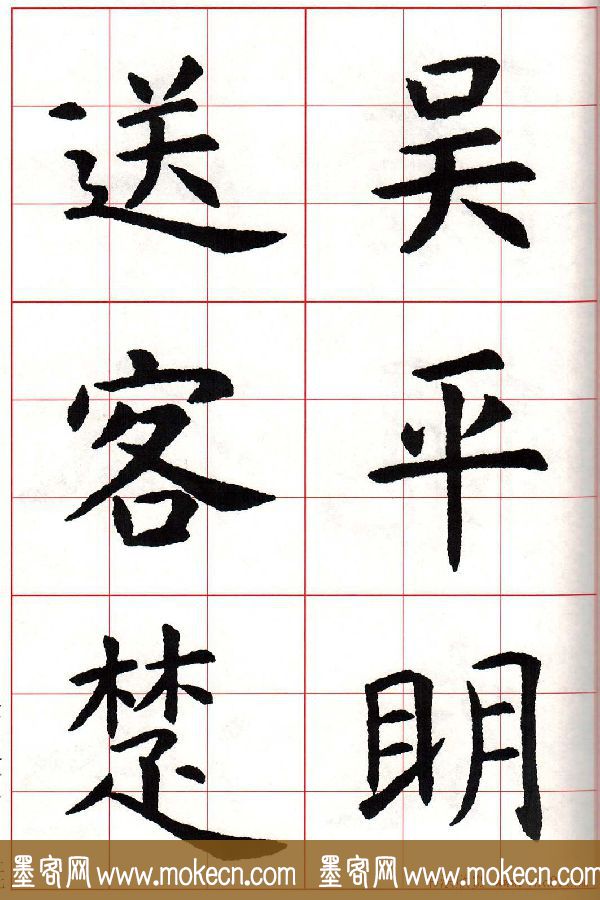 吴平明
送客楚
墨客网 www.mokecn.com 墨客网 www.mokecn.com